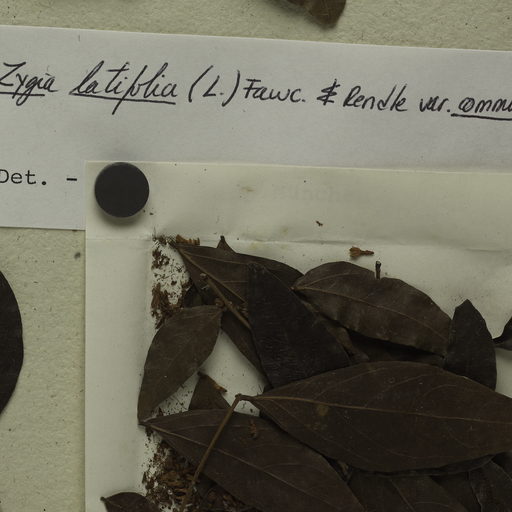 Zygia latifolia (L.) Fawc. & Rendle var.
Det. -